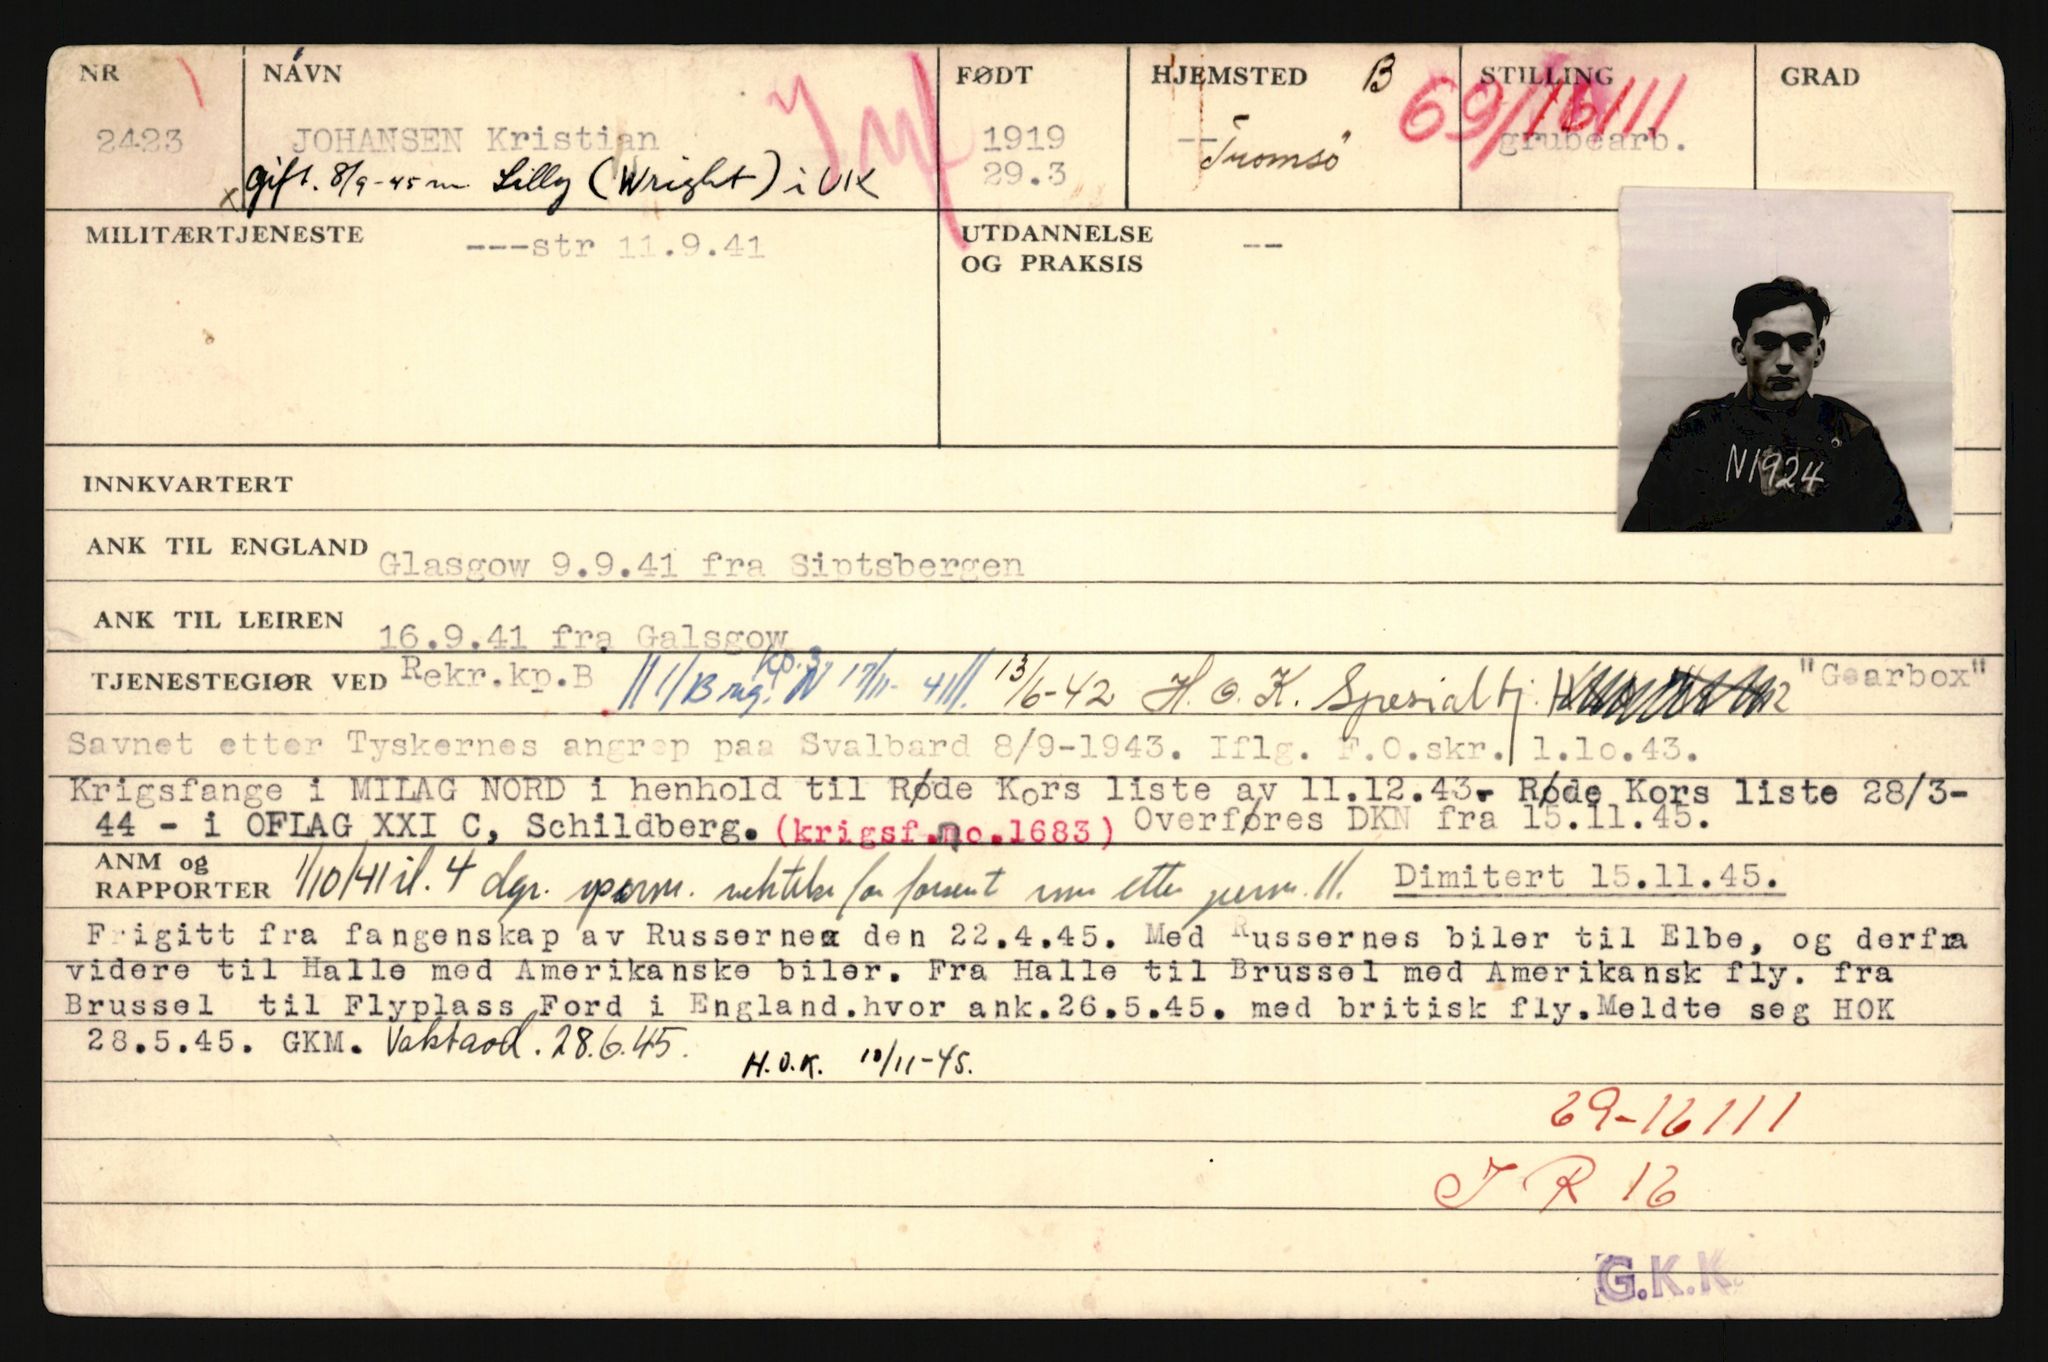 NR NAVN FØDT HJEMSTED B STILLING GRAD
69/16111
2423 JOHANSEN Kristian 1919 -- grubearb.
29.3 Tromsö
x gift. 8/9-45 m. Lilly (Wright) i UK
MILITÆRTJENESTE ---str 11.9.41 UTDANNELSE --
OG PRAKSIS
N1924
INNKVARTERT
ANK TIL ENGLAND Glasgow 9.9.41 fra Siptsbergen
ANK TIL LEIREN 16.9.41 fra Galsgow
TJENESTEGIØR VED Rekr.kp.B // 1/Brig. kp.3 N 17/11-41 //. 13/6-42 H.O.K. Spesialtj. "Gearbox"
Savnet etter Tyskernes angrep paa Svalbard 8/9-1943. Iflg. F.O.skr. 1.10.43.
Krigsfange i MILAG NORD i henhold til Røde Kors liste av 11.12.43. Røde Kors liste 28/3-
44 - i OFLAG XXI C, Schildberg. (krigsf.no.1683) Overføres DKN fra 15.11.45.
ANM og
RAPPORTER 1/10/41 il. 4 dgr. for etter perm. //. Dimitert 15.11.45.
Frigitt fra fangenskap av Russernex den 22.4.45. Med Russernes biler til Elbe, og derfra
videre til Halle med Amerikanske biler. Fra Halle til Brussel med Amerikansk fly. fra
Brussel til Flyplass Ford i England.hvor ank.26.5.45. med britisk fly.Meldte seg HOK
28.5.45. GKM. Vaktavd. 28.6.45.
H.O.K. 10/11-45.
69-16111
I R 16
G.K.K.